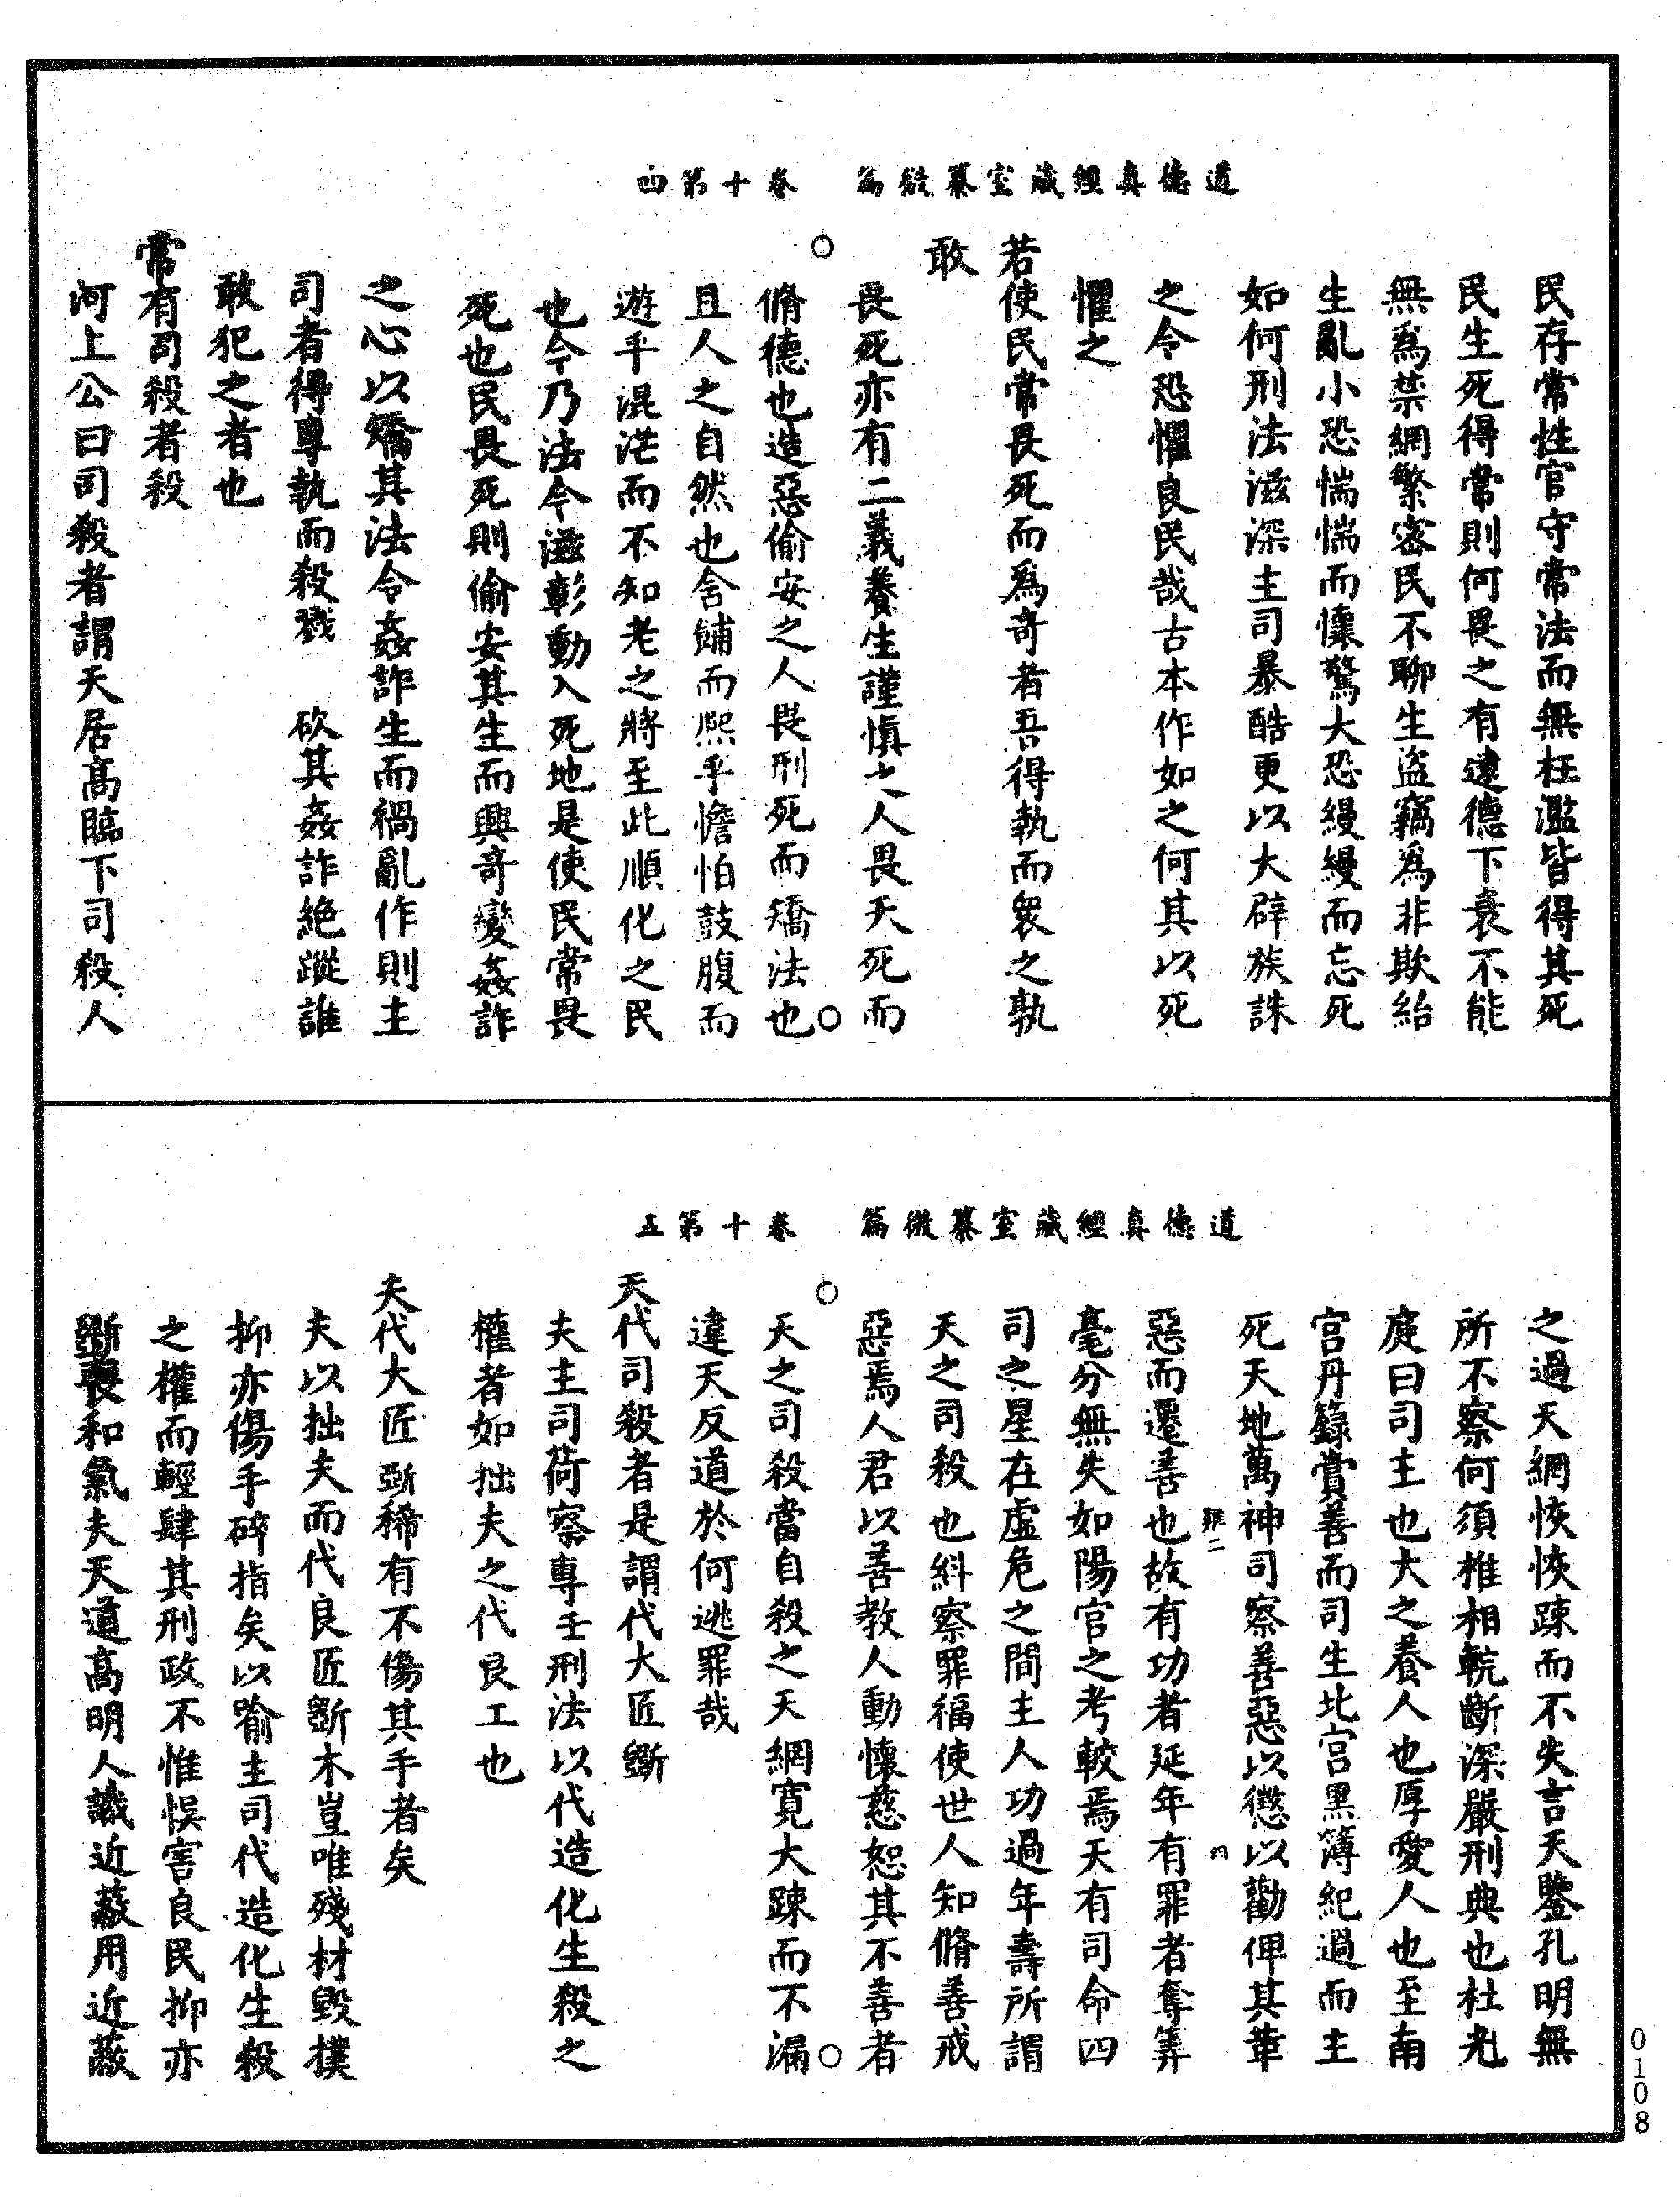 道德真經藏室纂微篇　卷十第四
民存常性官守常法而無枉濫皆得其死
民生死得常則何畏之有逮德下衰不能
無爲禁網繁密民不聊生盜竊爲非欺紿
生亂小恐惴惴而懷驚大恐縵縵而忘死
如何刑法滋深主司暴酷更以大辟族誅
之令恐懼良民哉古本作如之何其以死
懼之
若使民常畏死而爲奇者吾得執而殺之孰
敢
畏死亦有二義養生謹愼之人畏天死而
脩德也造惡偷安之人畏刑死而矯法也
且人之自然也含餔而熙乎憺怕鼓腹而
遊乎混茫而不知老之將至此順化之民
也今乃法令滋彰動入死地是使民常畏
死也民畏死則偷安其生而興奇變姦詐
之心以矯其法令姦詐生而禍亂作則主
司者得專執而殺戮　砍其姦詐絶蹤誰
敢犯之者也
常有司殺者殺
河上公曰司殺者謂天居高臨下司殺人
道德真經藏室纂微篇　卷十第五
之過天網恢恢踈而不失言天鑒孔明無
所不察何須椎相輐斷深嚴刑典也杜光
庭曰司主也大之養人也厚愛人也至南
宮丹籙賞善而司生北宮黑簿紀過而主
死天地萬神司察善惡以懲以勸俾其革
惡而遷善也故有功者延年有罪者奪筭
毫分無失如陽官之考較焉天有司命四
司之星在虛危之間主人功過年壽所謂
天之司殺也糾察罪福使世人知脩善戒
惡焉人君以善教人動懷慈恕其不善者
天之司殺當自殺之天網寬大踈而不漏
違天反道於何逃罪哉
夫代司殺者是謂代大匠斲
夫主司荷察專任刑法以代造化生殺之
權者如拙夫之代良工也
夫代大匠斲稀有不傷其手者矣
夫以拙夫而代良匠斲木豈唯殘材毀撲
抑亦傷手碎指矣以喻主司代造化生殺
之權而輕肆其刑政不惟悞害良民抑亦
斲喪和氣夫天道高明人議近蔽用近蔽
0108